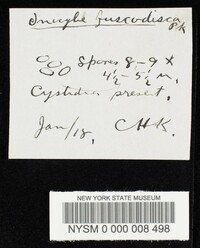 Inocybe fuscodisca
Pk
Spores 8-9 X
4½-5½ m.
Cystidia present.
Jan/18. CHK.
NEW YORK STATE MUSEUM
NYSM 0 000 008 498